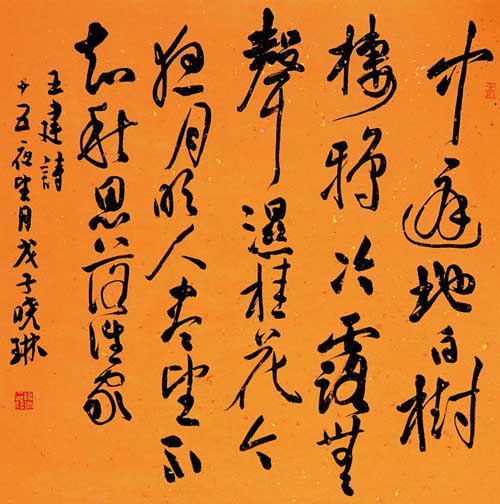 中庭地白樹
棲鴉冷露無
聲濕桂花今
夜月明人盡望不
知秋思落誰家
王建詩
十五夜望月戊子晓琳